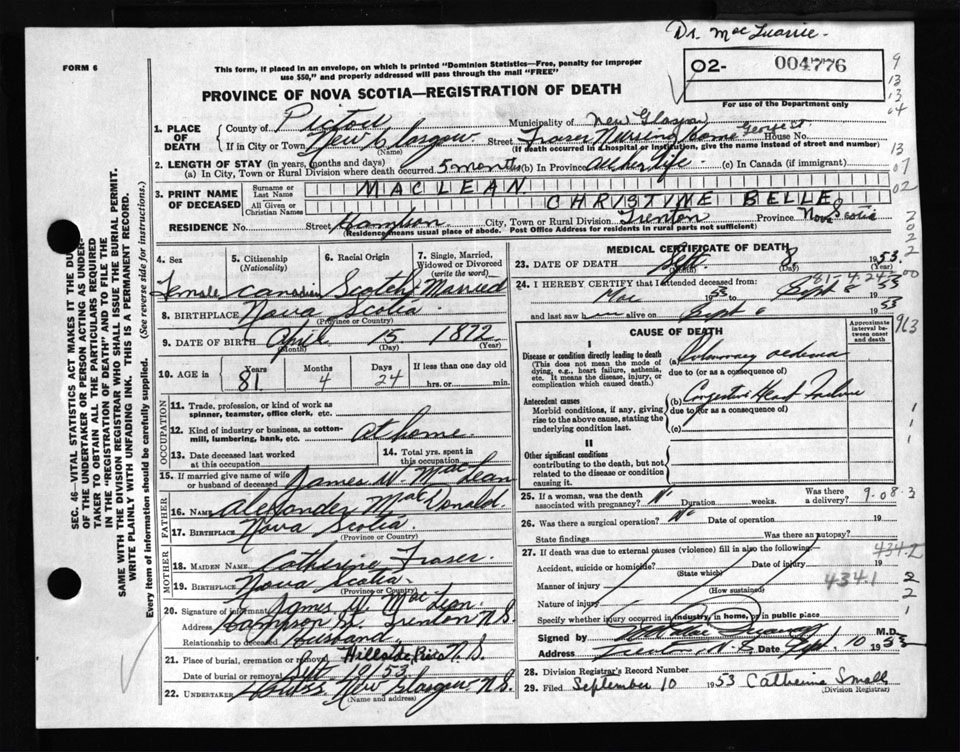 Dr. MacQuarrie
FORM 6
This form, if placed in an envelope, on which is printed "Dominion Statistics—Free, penalty for improper
use $50," and properly addressed will pass through the mail "FREE"
O2- 004776
For use of the Department only
PROVINCE OF NOVA SCOTIA—REGISTRATION OF DEATH
1. PLACE OF DEATH
County of Pictou Municipality of New Glasgow
If in City or Town New Glasgow (Name) Street Fraser Nursing Home George St. House No.
(If death occurred in a hospital or institution, give the name instead of street and number)
2. LENGTH OF STAY (in years, months and days)
(a) In City, Town or Rural Division where death occurred 5 months (b) In Province all her life. (c) In Canada (if immigrant)
3. PRINT NAME OF DECEASED
Surname or Last Name MACLEAN
All Given or Christian Names CHRISTINE BELLE
RESIDENCE No. Street Hampson City, Town or Rural Division Trenton Province Nova Scotia
(Residence means usual place of abode. Post Office Address for residents in rural parts not sufficient)
4. Sex
Female
5. Citizenship (Nationality)
Canadian
6. Racial Origin
Scotch
7. Single, Married, Widowed or Divorced (write the word)
Married
8. BIRTHPLACE Nova Scotia
(Province or Country)
9. DATE OF BIRTH April 15 1872
(Month) (Day) (Year)
10. AGE in Years 81 Months 4 Days 24 If less than one day old hrs. or min.
OCCUPATION
11. Trade, profession, or kind of work as spinner, teamster, office clerk, etc.
12. Kind of industry or business, as cotton-mill, lumbering, bank, etc. At home
13. Date deceased last worked at this occupation
14. Total yrs. spent in this occupation
15. If married give name of wife or husband of deceased James W. MacLean
FATHER
16. NAME Alexander MacDonald
17. BIRTHPLACE Nova Scotia
(Province or Country)
MOTHER
18. MAIDEN NAME Catherine Fraser
19. BIRTHPLACE Nova Scotia
(Province or Country)
20. Signature of informant James W. MacLean
Address Hampson St. Trenton N.S.
Relationship to deceased Husband
21. Place of burial, cremation or removal Hillside, N.S.
Date of burial or removal Sept. 11 53
22. UNDERTAKER New Glasgow N.S.
(Name and address)
MEDICAL CERTIFICATE OF DEATH
23. DATE OF DEATH Sept. 8 1953.
(Month) (Day) (Year)
24. I HEREBY CERTIFY that I attended deceased from:
1953 to Sept 8 1953
and last saw h alive on Sept 6 1953
CAUSE OF DEATH
Approximate interval between onset and death
I
Disease or condition directly leading to death
(This does not mean the mode of dying, e.g., heart failure, asthenia, etc. It means the disease, injury, or complication which caused death.)
(a) Pulmonary oedema
due to (or as a consequence of)
Antecedent causes
Morbid conditions, if any, giving rise to the above cause, stating the underlying condition last.
(b) Congestive Heart Failure
due to (or as a consequence of)
(c)
II
Other significant conditions
contributing to the death, but not related to the disease or condition causing it.
25. If a woman, was the death associated with pregnancy? No Duration weeks. Was there a delivery?
26. Was there a surgical operation? No Date of operation 19
State findings Was there an autopsy?
27. If death was due to external causes (violence) fill in also the following—
Accident, suicide or homicide? Date of injury 19
(State which)
Manner of injury
(How sustained)
Nature of injury
Specify whether injury occurred in industry, in home, or in public place
Signed by M.D.
Address Trenton, N.S. Date Sept. 10 1953
28. Division Registrar's Record Number
29. Filed September 10 1953 Catherine Small
(Division Registrar)
434.2
4341
9.08.3
963
SEC. 46—VITAL STATISTICS ACT MAKES IT THE DUTY
OF THE UNDERTAKER OR PERSON ACTING AS UNDERTAKER
TO OBTAIN ALL THE PARTICULARS REQUIRED
IN THE "REGISTRATION OF DEATH" AND TO FILE THE
SAME WITH THE DIVISION REGISTRAR WHO SHALL ISSUE THE BURIAL PERMIT.
WRITE PLAINLY WITH UNFADING INK. THIS IS A PERMANENT RECORD.
Every item of information should be carefully supplied. (See reverse side for instructions.)